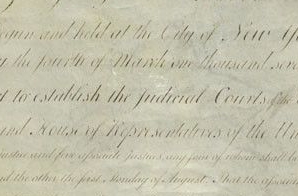 egun and held at the City of New Yo
the fourth of March one thousand seve
to establish the Judicial Courts of the
and House of Representatives of the Un
justice and five associate justices, any four of whom shall be
and the other the first Monday of August. That the associa